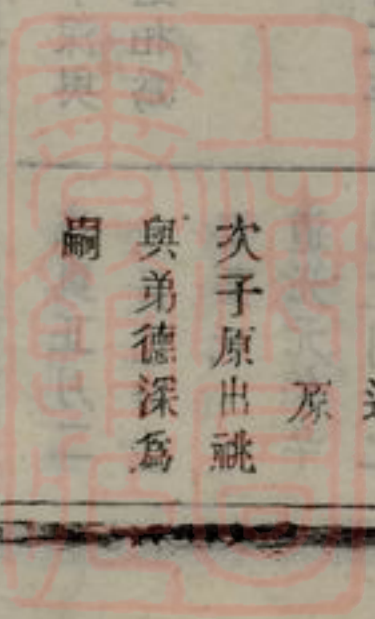 原
次子原出祧
與弟德深爲
嗣